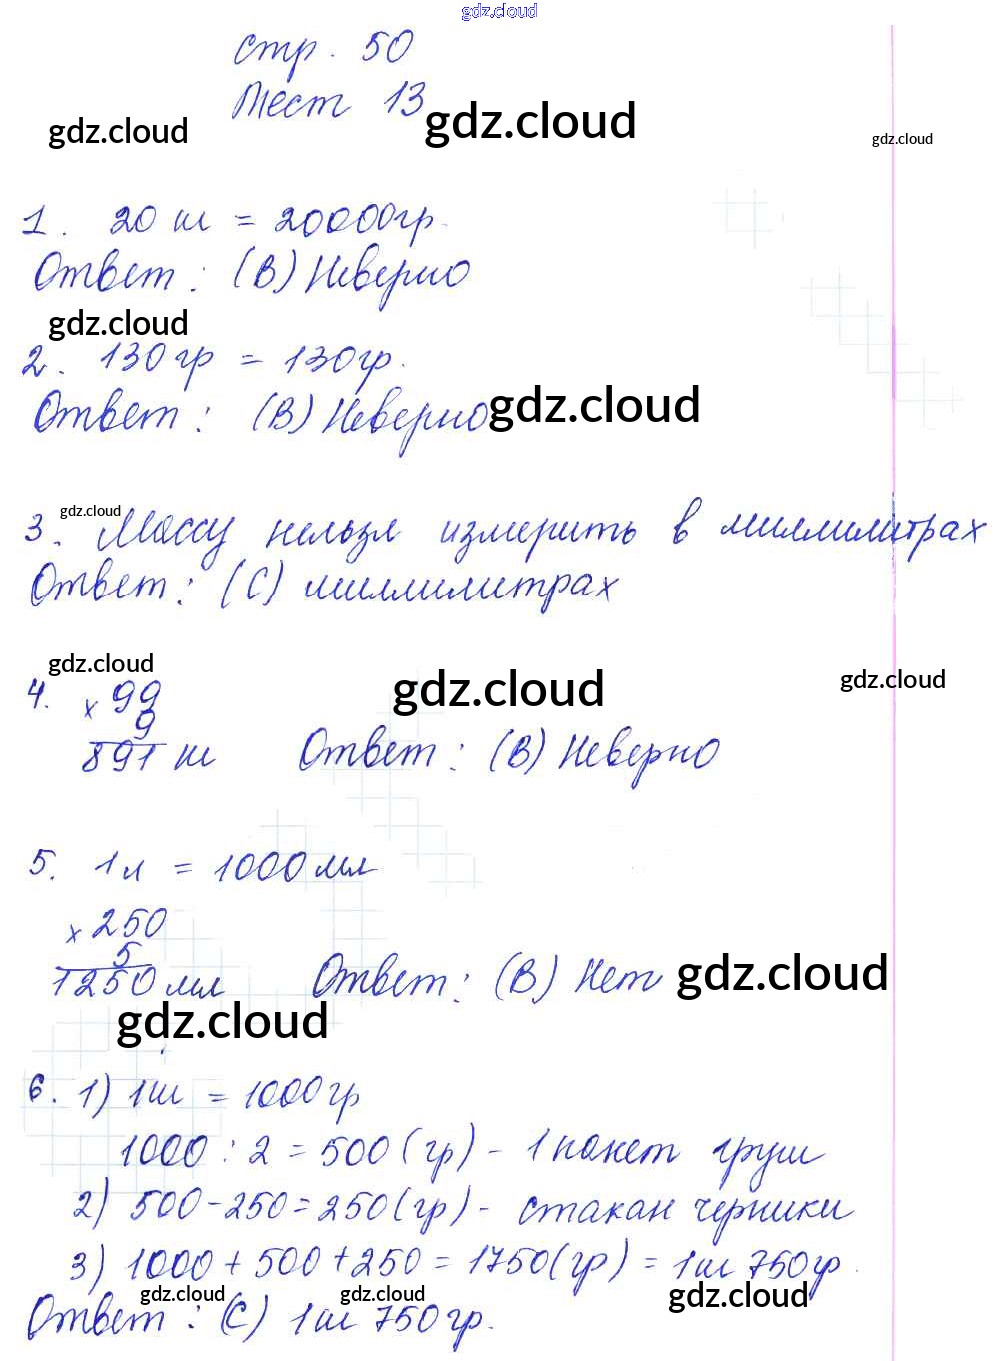 gdz.cloud
стр. 50
Тест 13
gdz.cloud gdz.cloud gdz.cloud
1. 20 кг = 20000гр.
Ответ: (В) Неверно
gdz.cloud
2. 130 гр = 130гр.
Ответ: (В) Неверно gdz.cloud
gdz.cloud
3. Массу нельзя измерить в миллилитрах
Ответ: (С) миллилитрах
gdz.cloud gdz.cloud gdz.cloud
4. х 99
9
891 кг Ответ: (В) Неверно
5. 1 л = 1000 мл
х 250
5
1250 мл Ответ: (В) Нет gdz.cloud
gdz.cloud
6. 1) 1кг = 1000 гр
1000 : 2 = 500 (гр) - 1 пакет груш
2) 500 - 250 = 250 (гр) - стакан черники
3) 1000 + 500 + 250 = 1750 (гр) = 1кг 750гр.
gdz.cloud gdz.cloud gdz.cloud
Ответ: (С) 1 кг 750 гр.